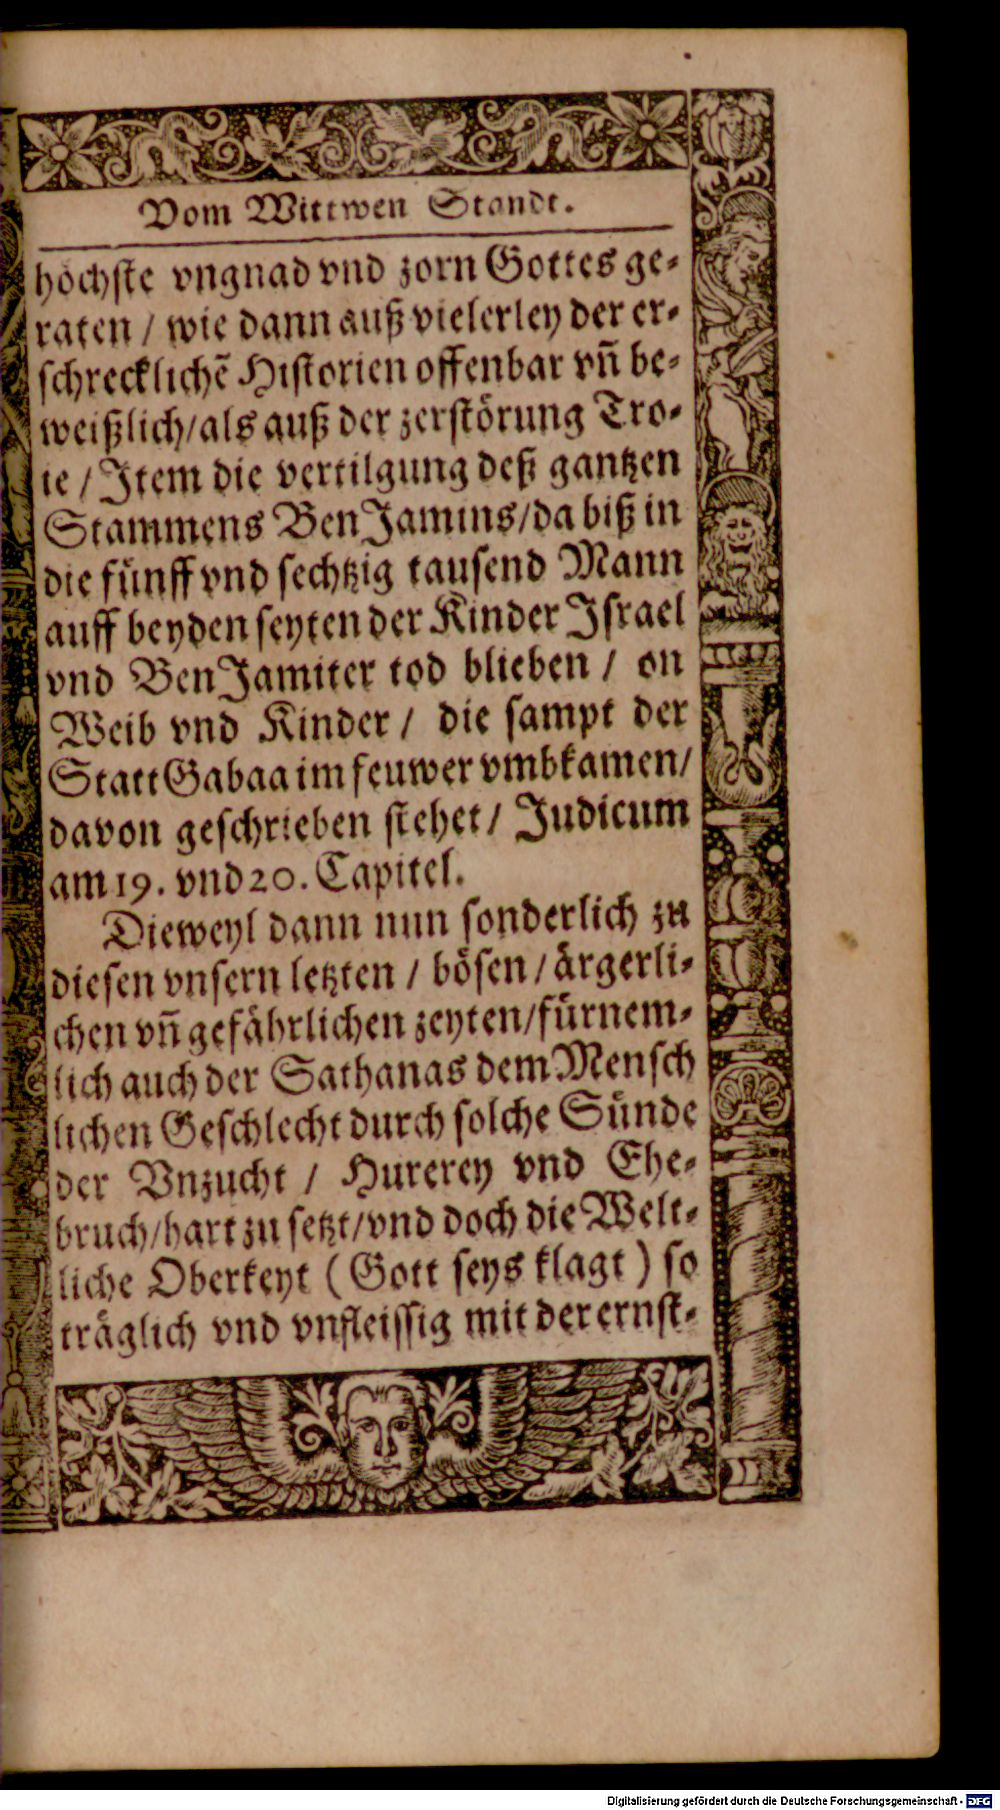 Vom Wittwen Standt.
höchste vngnad vnd zorn Gottes ge-
raten / wie dann auß vielerley der er-
schrecklichẽ Historien offenbar vñ be-
weißlich/als auß der zerstörung Tro-
ie / Item die vertilgung deß gantzen
Stammens BenJamins/da biß in
die fünff vnd sechtzig tausend Mann
auff beyden seyten der Kinder Israel
vnd BenJamiter tod blieben / on
Weib vnd Kinder / die sampt der
Statt Gabaa im feuwer vmbkamen/
davon geschrieben stehet / Judicum
am 19. vnd 20. Capitel.
Dieweyl dann nun sonderlich zu
diesen vnsern letzten / bösen / ärgerli-
chen vñ gefährlichen zeyten/fürnem-
lich auch der Sathanas dem Mensch
lichen Geschlecht durch solche Sünde
der Vnzucht / Hurerey vnd Ehe-
bruch/hart zu setzt/vnd doch die Welt-
liche Oberkeyt (Gott seys klagt) so
träglich vnd vnfleissig mit der ernst-
Digitalisierung gefördert durch die Deutsche Forschungsgemeinschaft - DFG